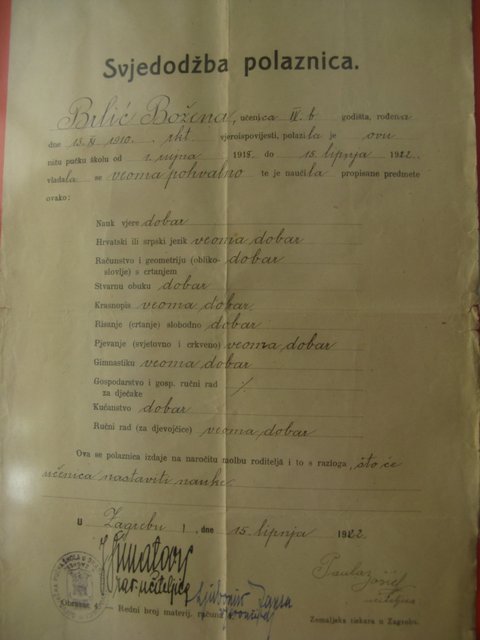 Svjedodžba polaznica.
Brlić Božena, učenica IV. b godišta, rođena
dne 13. XI 1910. rkt vjeroispovijesti, polazila je ovu
nižu pučku školu od 1. rujna 1918 do 15. lipnja 1922.
vladala se veoma pohvalno te je naučila propisane predmete
ovako:
Nauk vjere dobar
Hrvatski ili srpski jezik veoma dobar
Računstvo i geometriju (obliko- dobar
slovlje) s crtanjem
Stvarnu obuku dobar
Krasnopis veoma dobar
Risanje (crtanje) slobodno dobar
Pjevanje (svjetovno i crkveno) veoma dobar
Gimnastiku veoma dobar
Gospodarstvo i gosp. ručni rad
za dječake ∕.
Kućanstvo dobar
Ručni rad (za djevojčice) veoma dobar
Ova se polaznica izdaje na naročitu molbu roditelja i to s razloga, što će
učenica nastaviti nauke
U Zagrebu, dne 15. lipnja 1922
rav. učiteljica
Ljubomir
Paula
učiteljica
Obrazac 4 - Redni broj materij. računa
Zemaljska tiskara u Zagrebu.